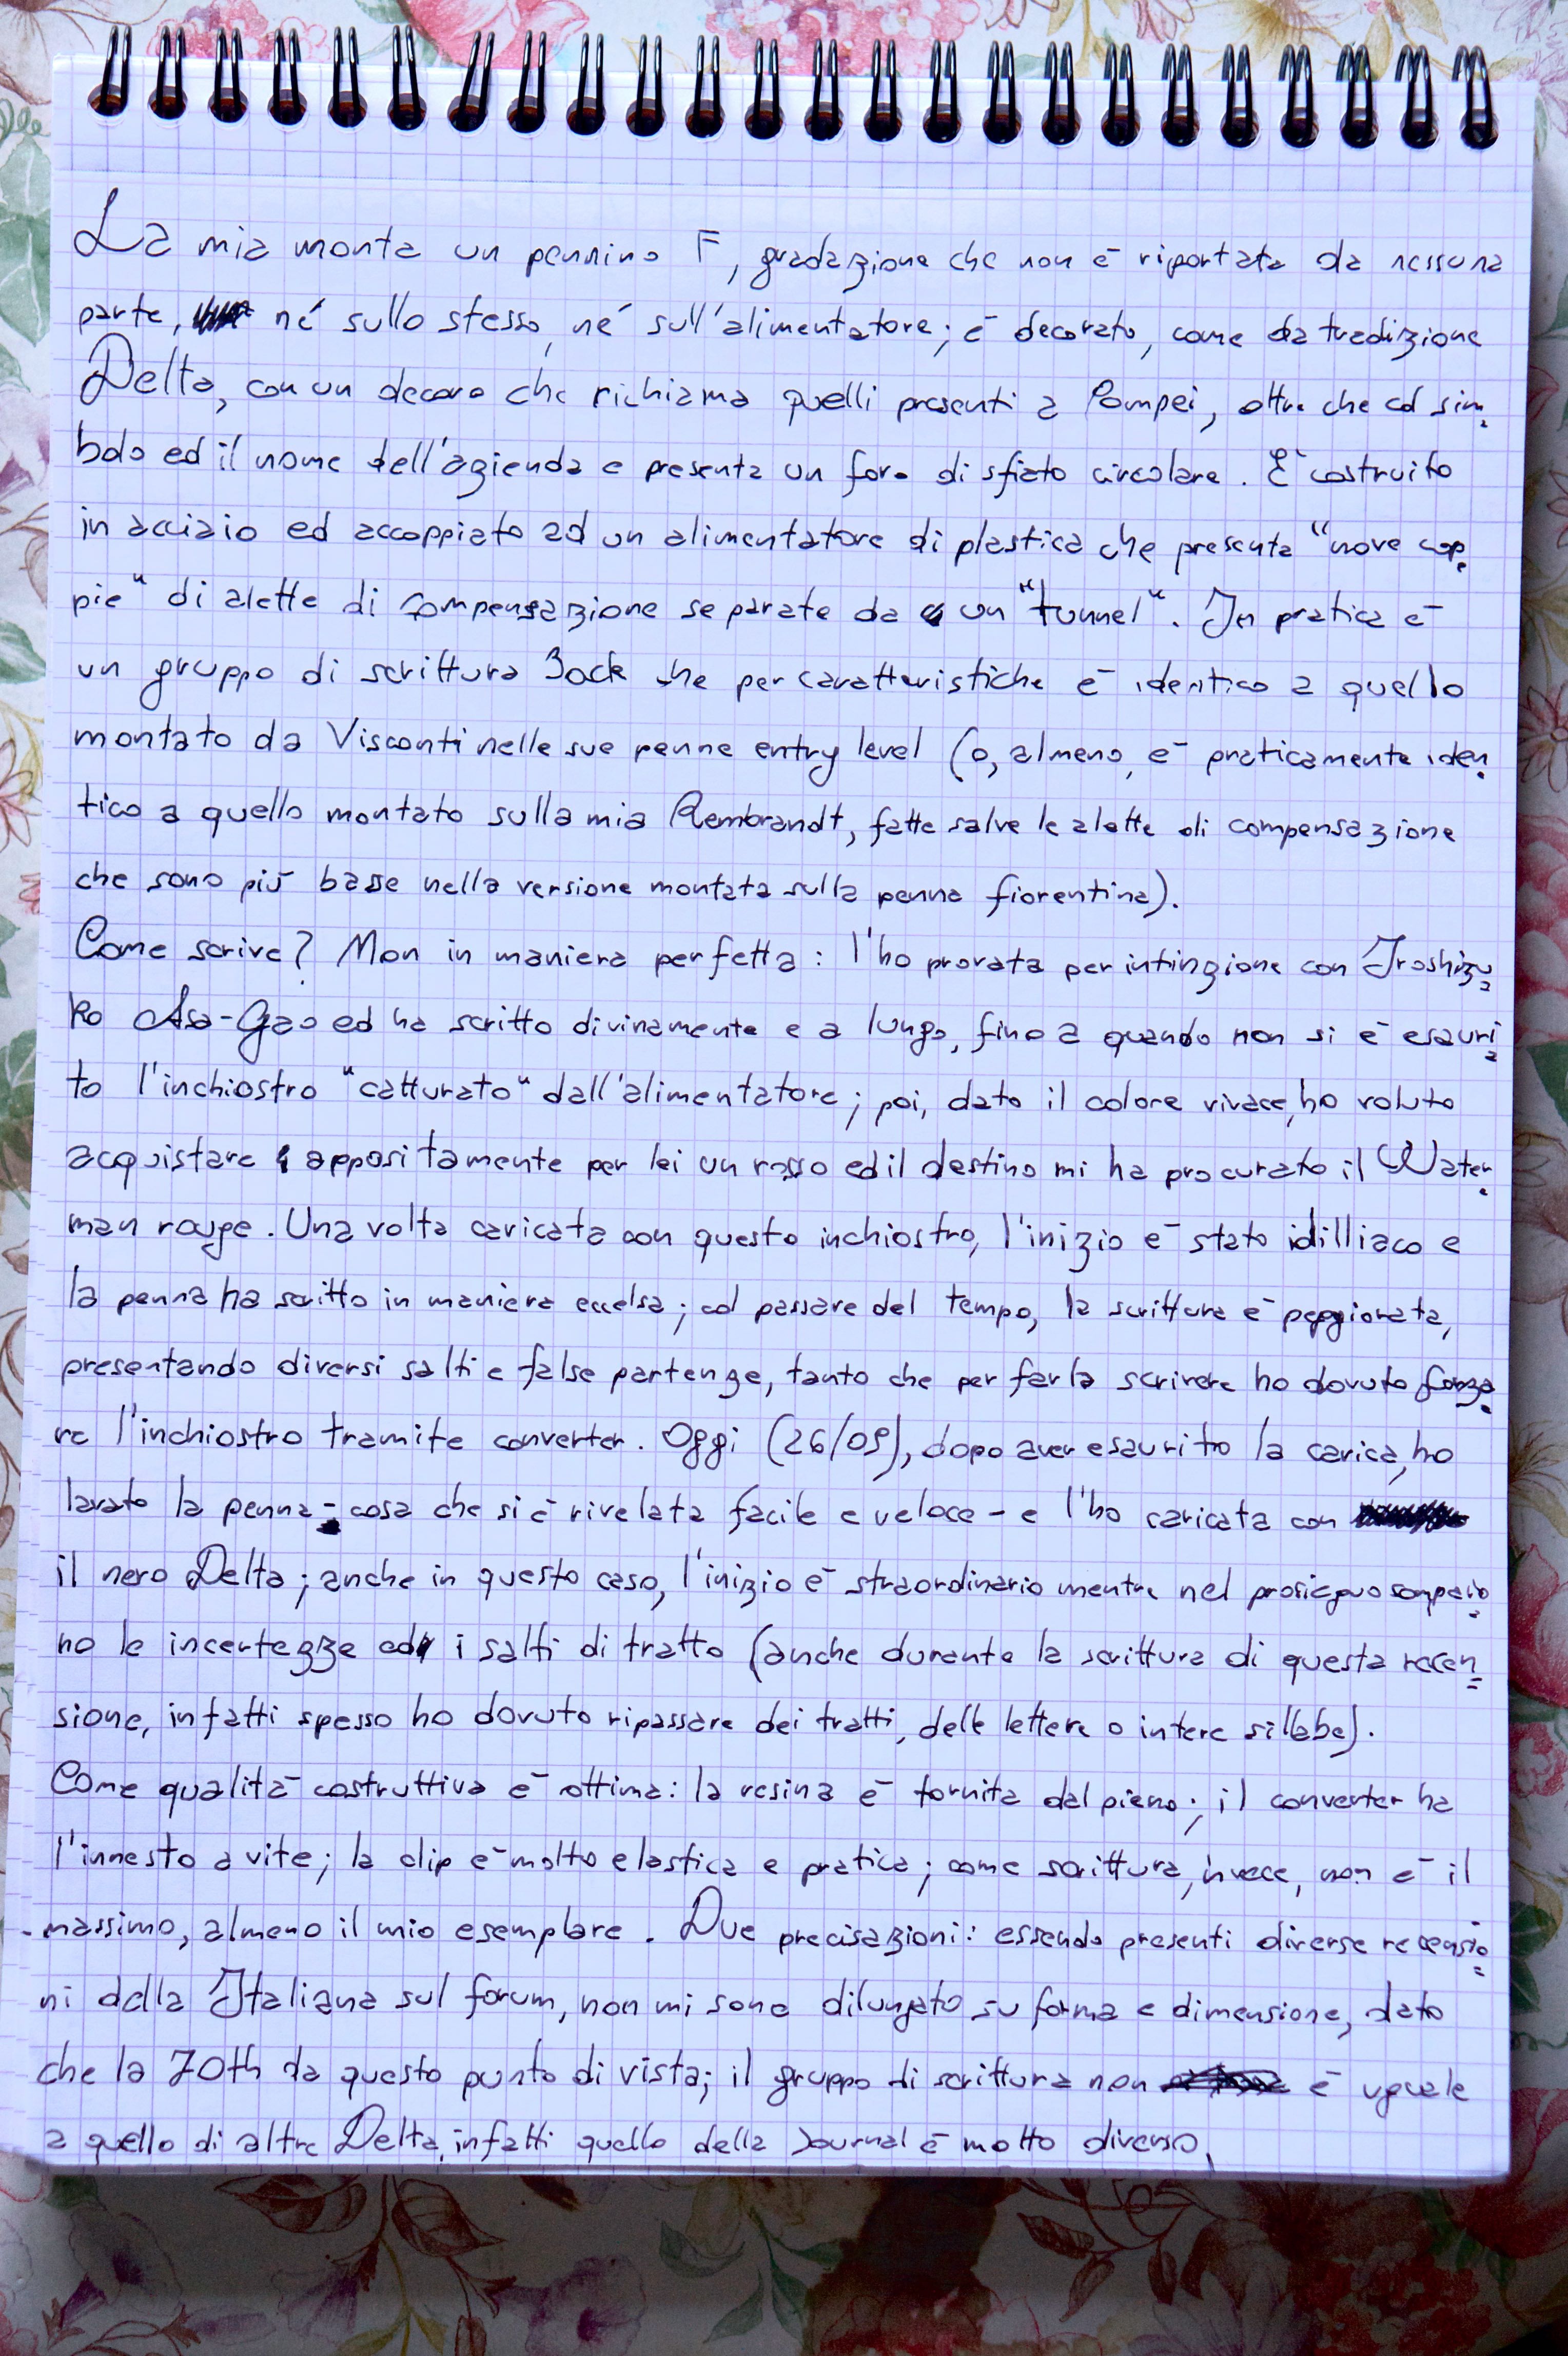 La mia monta un pennino F, gradazione che non è riportata da nessuna
parte, né sullo stesso, né sull'alimentatore; è decorato, come da tradizione
Delta, con un decoro che richiama quelli presenti a Pompei, oltre che col sim
bolo ed il nome dell'azienda e presenta un foro di sfiato circolare. È costruito
in acciaio ed accoppiato ad un alimentatore di plastica che presenta "nove cop
pie" di alette di compensazione separate da un "tunnel". In pratica è
un gruppo di scrittura Bock che per caratteristiche è identico a quello
montato da Visconti nelle sue penne entry level (o, almeno, è praticamente iden
tico a quello montato sulla mia Rembrandt, fatte salve le alette di compensazione
che sono più basse nella versione montata sulla penna fiorentina).
Come scrive? Non in maniera perfetta: l'ho provata per intinzione con Iroshizu
ko Asa-Gao ed ha scritto divinamente e a lungo, fino a quando non si è esauri
to l'inchiostro "catturato" dall'alimentatore; poi, dato il colore vivace, ho voluto
acquistare appositamente per lei un rosso ed il destino mi ha procurato il Water
man rouge. Una volta caricata con questo inchiostro, l'inizio è stato idilliaco e
la penna ha scritto in maniera eccelsa; col passare del tempo, la scrittura è peggiorata,
presentando diversi salti e false partenze, tanto che per farla scrivere ho dovuto forza
re l'inchiostro tramite converter. Oggi (26/09), dopo aver esaurito la carica, ho
lavato la penna - cosa che si è rivelata facile e veloce - e l'ho caricata con
il nero Delta; anche in questo caso, l'inizio è straordinario mentre nel prosieguo compaio
no le incertezze ed i salti di tratto (anche durante la scrittura di questa recen
sione, infatti spesso ho dovuto ripassare dei tratti, delle lettere o intere sillabe).
Come qualità costruttiva è ottima: la resina è tornita dal pieno; il converter ha
l'innesto a vite; la clip è molto elastica e pratica; come scrittura, invece, non è il
massimo, almeno il mio esemplare. Due precisazioni: essendo presenti diverse recensio
ni della Italiana sul forum, non mi sono dilungato su forma e dimensione, dato
che la 70th da questo punto di vista; il gruppo di scrittura non è uguale
a quello di altre Delta, infatti quello della Journal è molto diverso,